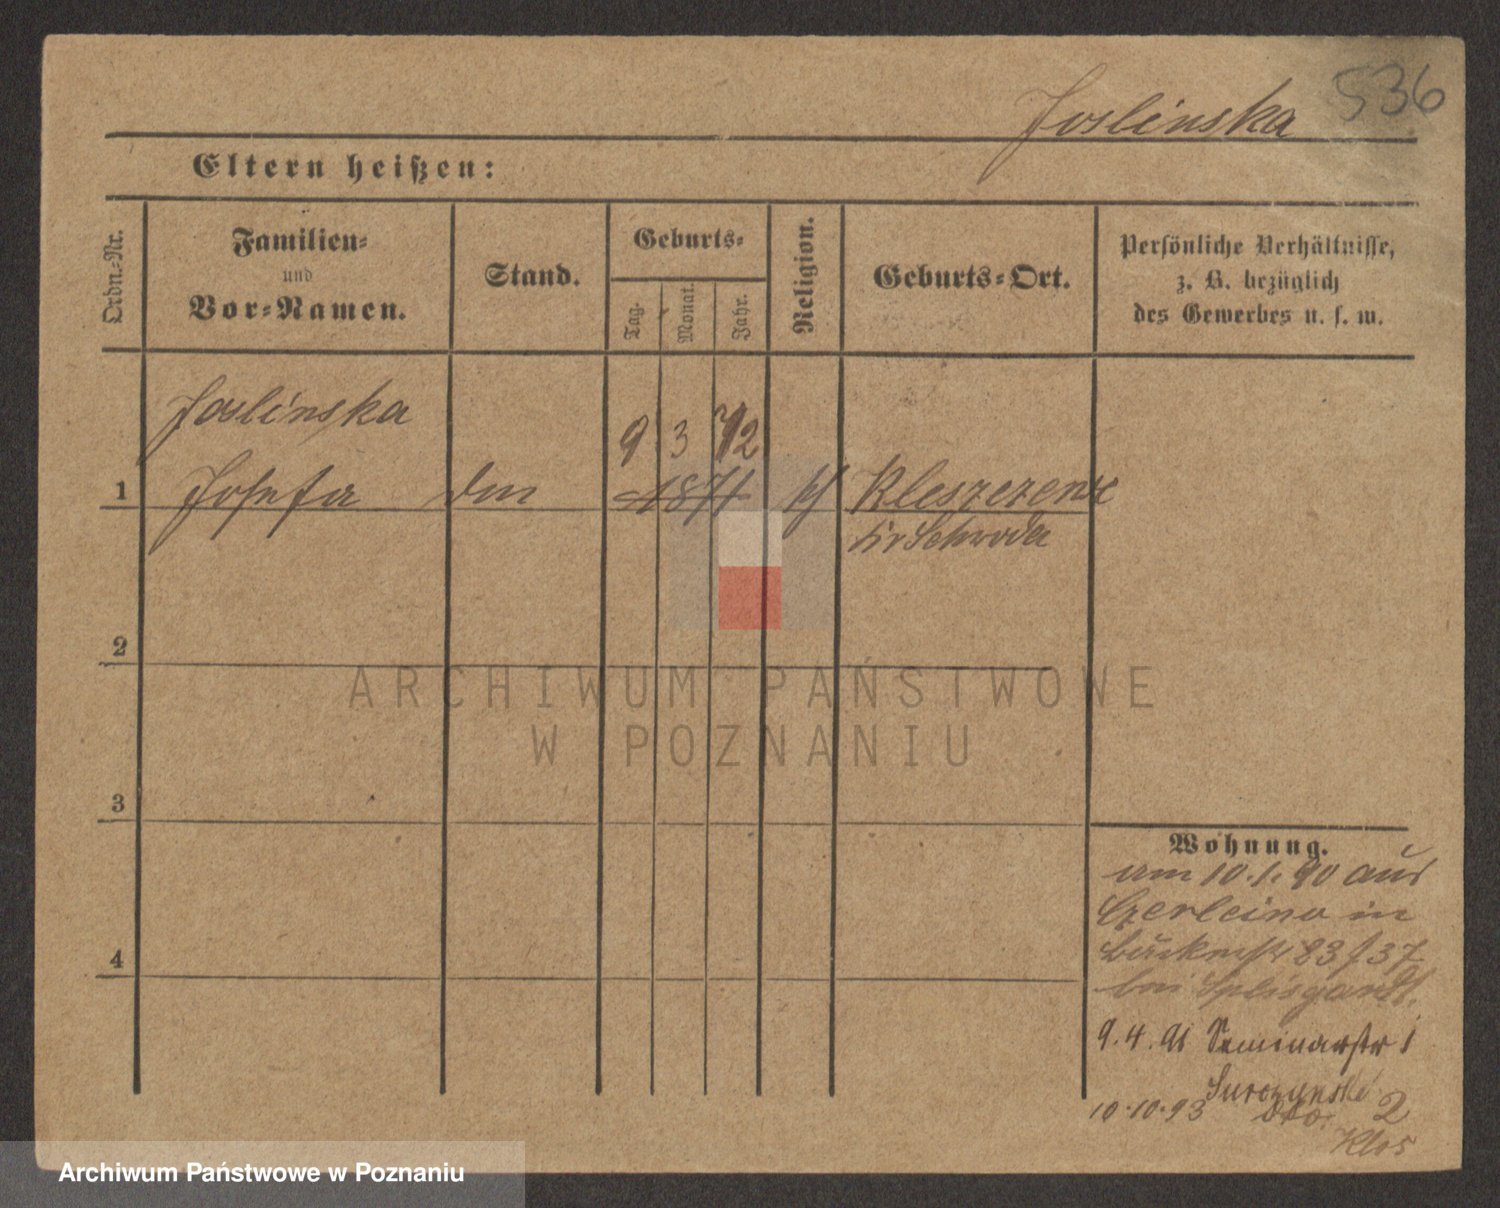 536
Joslinska
Eltern heißen:
Ordn.-Nr.
Familien-
und
Vor-Namen.
Stand.
Geburts-
Tag.
Monat.
Jahr.
Religion.
Geburts-Ort.
Persönliche Verhältnisse,
z. B. bezüglich
des Gewerbes u. s. w.
Joslinska
9 3 72
1 Josefa 1871 Kleszczewo
Kr Schroda
2
ARCHIWUM PAŃSTWOWE
W POZNANIU
3
Wohnung.
am 10.1.90 aus
in
83/37
bei
4
9.4.91 Seminarstr 1
Surczynski
10.10.93 dto. 2
Klos
Archiwum Państwowe w Poznaniu